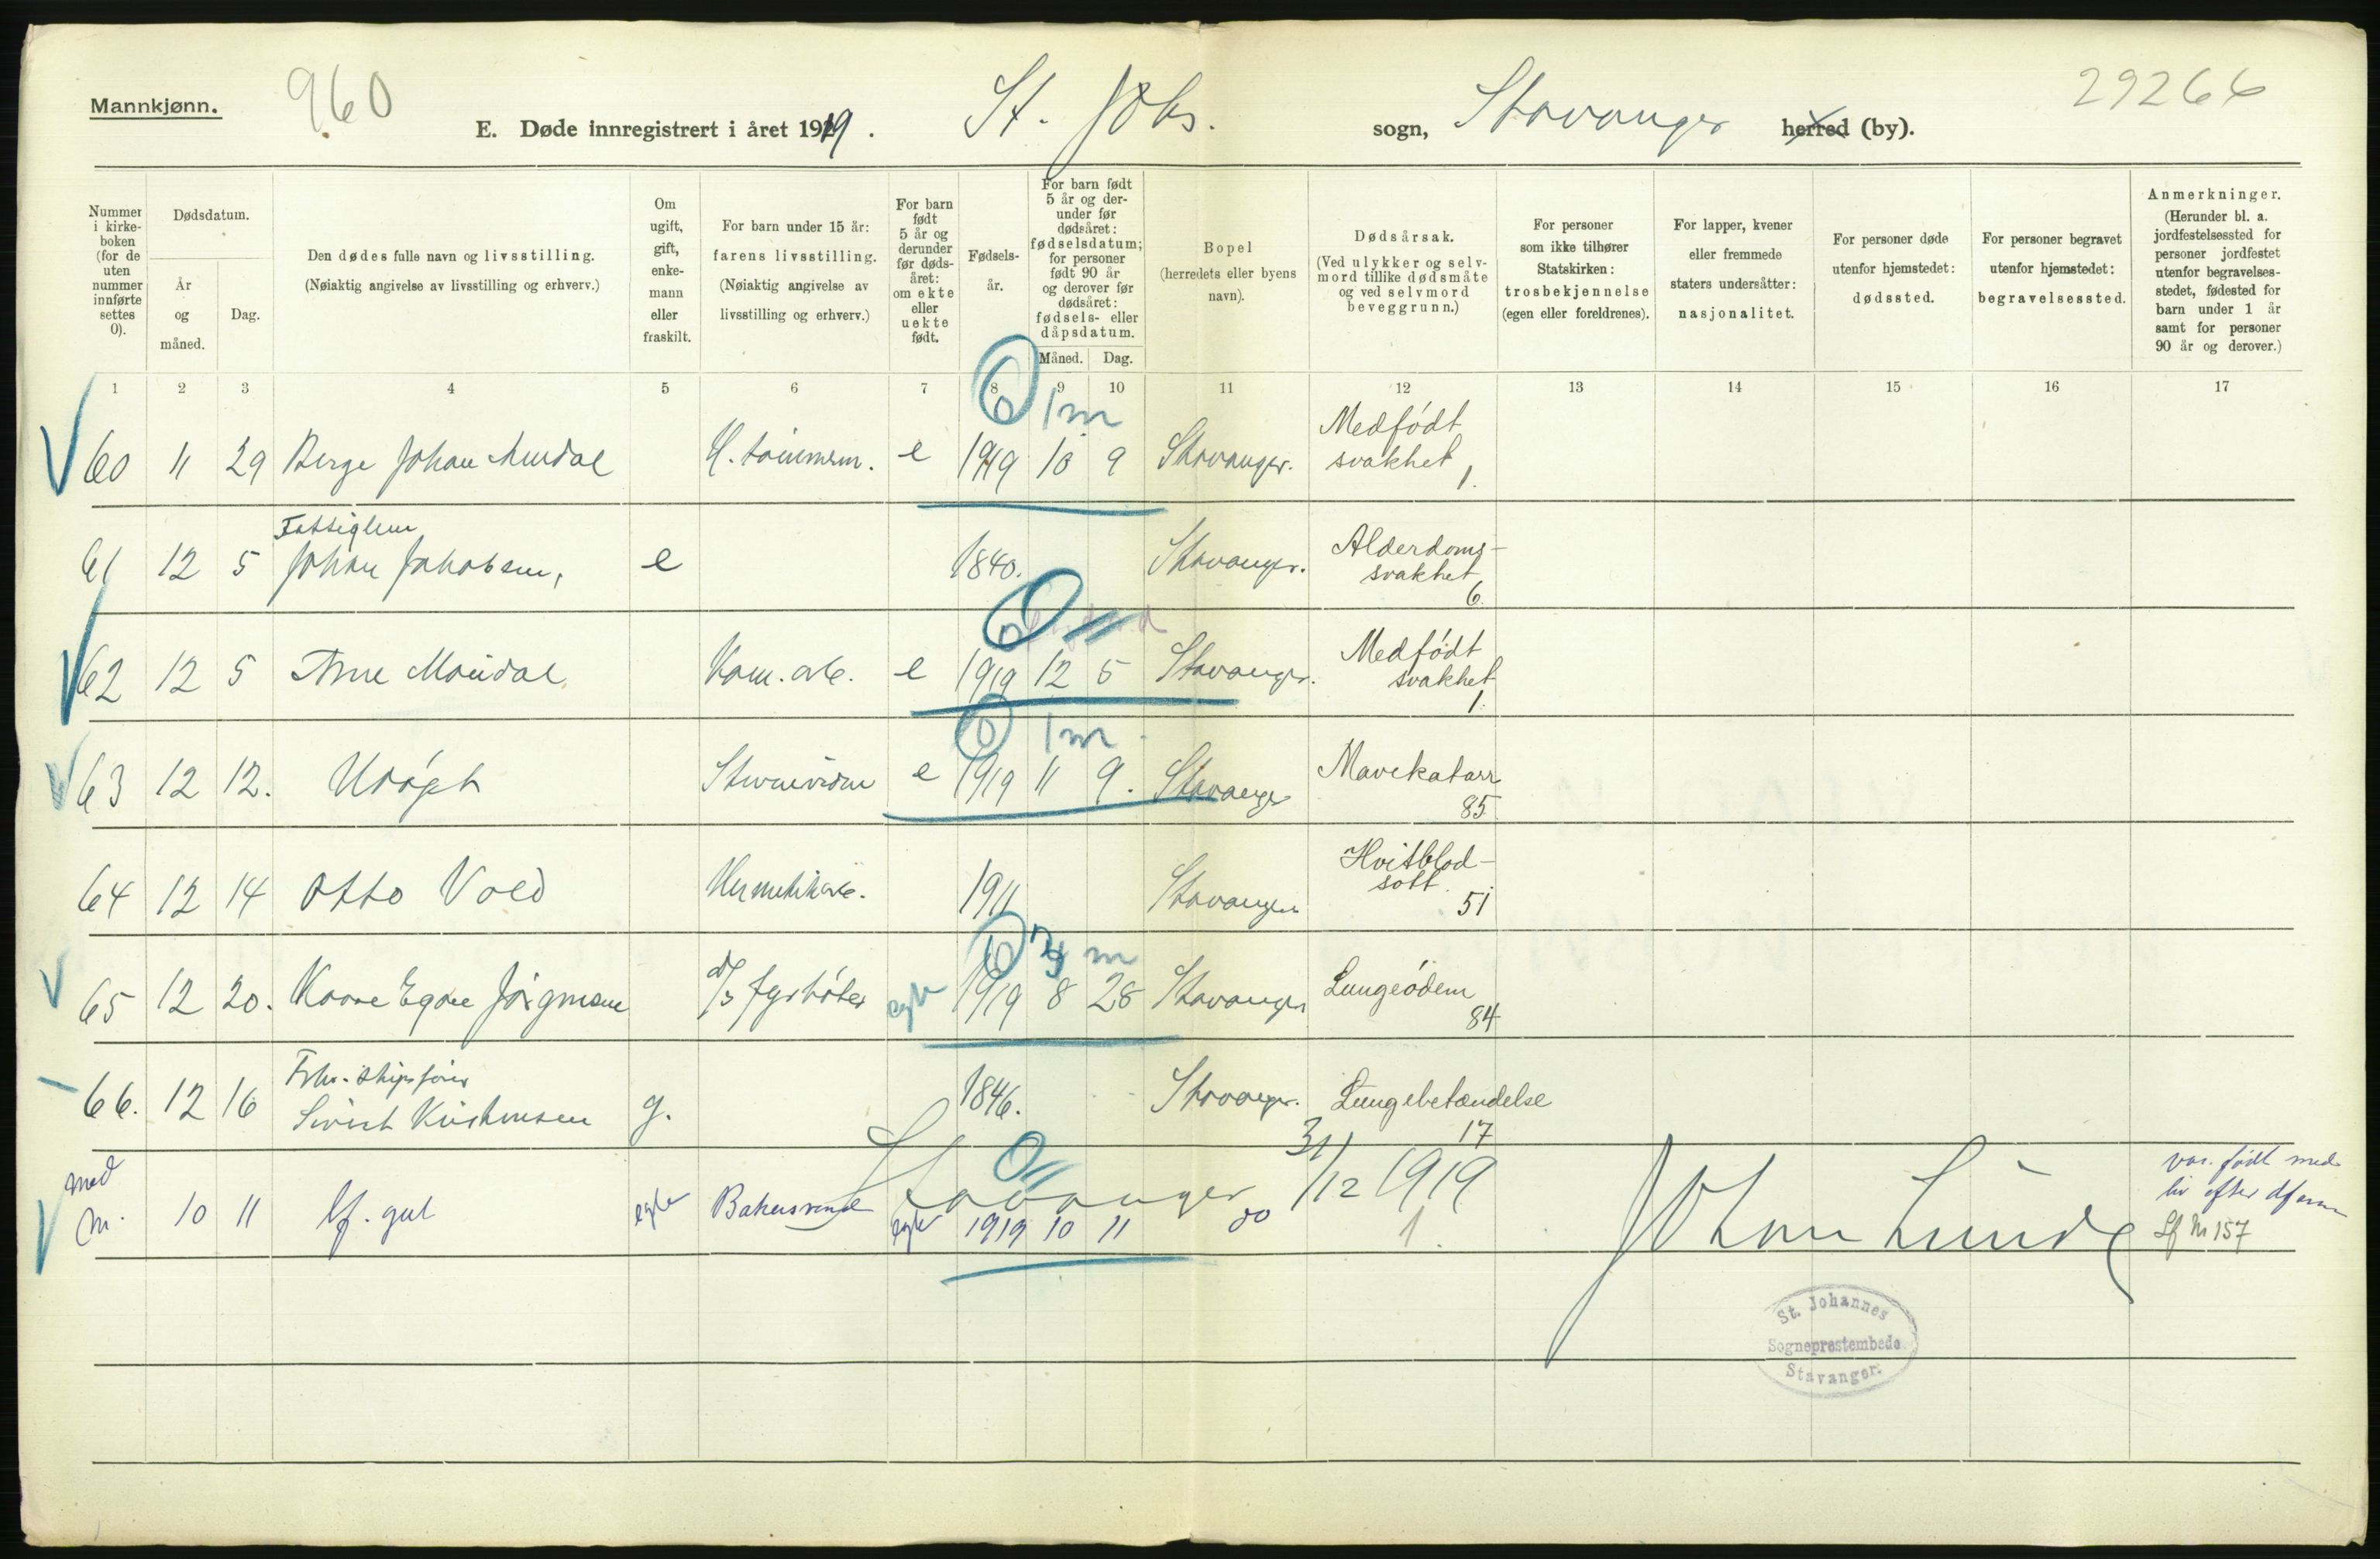 Mannkjønn.
960
E. Døde innregistrert i året 1919. St. Johs. sogn, Stavanger herred (by).
29266
Nummer i kirkeboken (for de uten nummer innførte settes 0).
Dødsdatum.
År og måned.
Dag.
Den dødes fulle navn og livsstilling.
(Nøiaktig angivelse av livsstilling og erhverv.)
Om ugift, gift, enkemann eller fraskilt.
For barn under 15 år: farens livsstilling.
(Nøiaktig angivelse av livsstilling og erhverv.)
For barn født 5 år og derunder før dødsåret: om ekte eller uekte født.
Fødselsår.
For barn født 5 år og derunder før dødsåret: fødselsdatum; for personer født 90 år og derover før dødsåret: fødsels- eller dåpsdatum.
Måned. Dag.
Bopel (herredets eller byens navn).
Dødsårsak.
(Ved ulykker og selvmord tillike dødsmåte og ved selvmord beveggrunn.)
For personer som ikke tilhører Statskirken: trosbekjennelse (egen eller foreldrenes).
For lapper, kvener eller fremmede staters undersåtter: nasjonalitet.
For personer døde utenfor hjemstedet: dødssted.
For personer begravet utenfor hjemstedet: begravelsessted.
Anmerkninger.
(Herunder bl. a. jordfestelsessted for personer jordfestet utenfor begravelsesstedet, fødested for barn under 1 år samt for personer 90 år og derover.)
1 2 3 4 5 6 7 8 9 10 11 12 13 14 15 16 17
0 1 m
60 11 29 Berge Johan e 1919 10 9 Stavanger. Medfødt svakhet 1.
Fattiglem
61 12 5 Johan Jakobsen, e 1840. Stavanger. Alderdoms-svakhet 6.
0
62 12 5 Arne e 1919 12 5 Stavanger. Medfødt svakhet 1.
0 1 m
63 12 12. Udøpt e 1919 11 9. Stavanger Mavekatarr 85
64 12 14 Otto Vold 1911 Stavanger Hvitblod-sott. 51
0 3 m
65 12 20. Kaare Egore Jørgensen d/s fyrbøter egte 1919 8 28 Stavanger Lungeødem 84
Fhv. skipsfører
66. 12 16 Sivert Kristensen g. 1846. Stavanger. Lungebetændelse 17
0
Stavanger 31/12 1919 Johan Lunde
med m. 10 11 lf. gut egte Bakersvend egte 1919 10 11 do 1. var født med liv efter
Lf № 157
St. Johannes
Sogneprestembede
Stavanger.